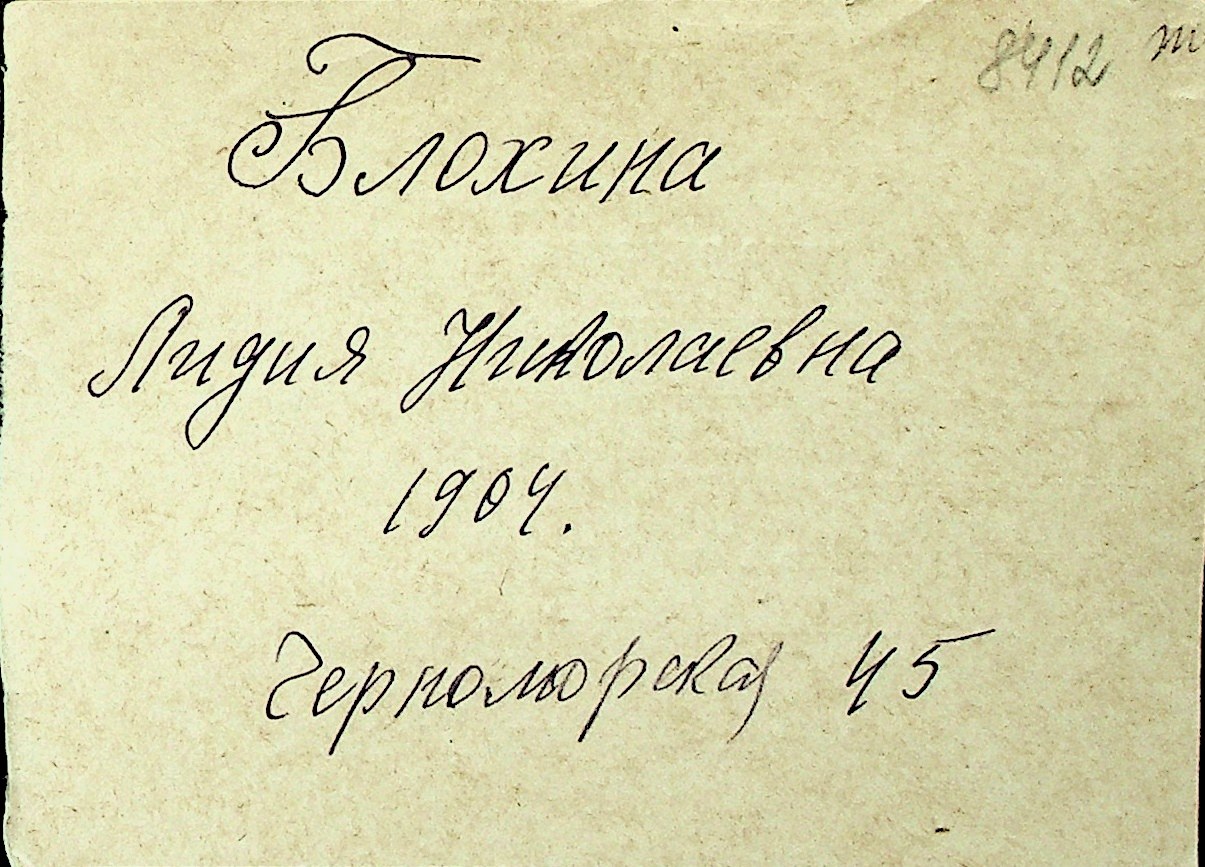 8412 т
Блохина
Лидия Николаевна
1904.
Черноморская 45